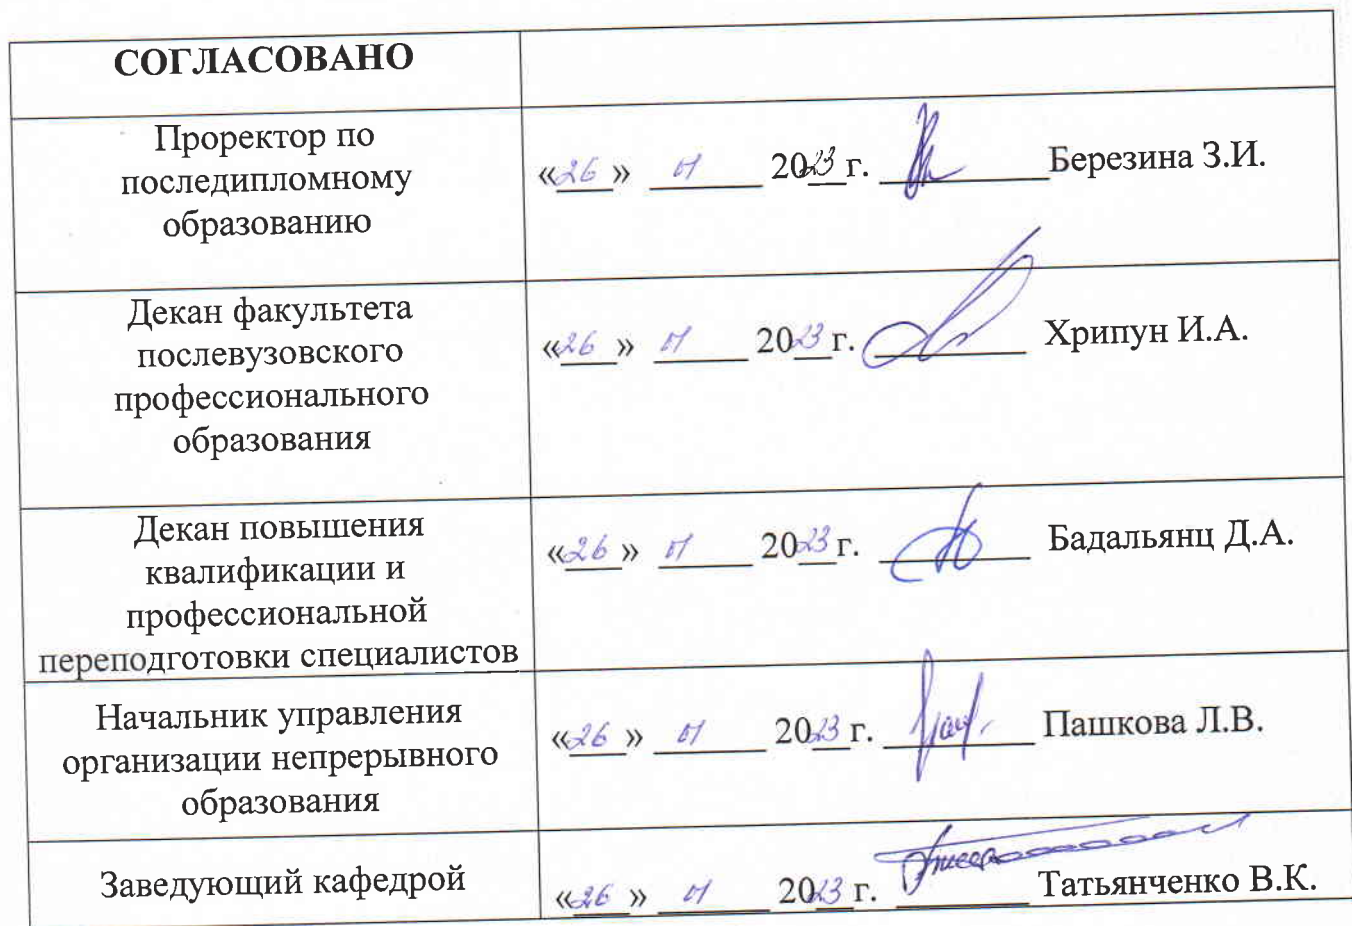 СОГЛАСОВАНО
Проректор по
последипломному
образованию
«26» 01 2023 г. Березина З.И.
Декан факультета
послевузовского
профессионального
образования
«26» 01 2023 г. Хрипун И.А.
Декан повышения
квалификации и
профессиональной
переподготовки специалистов
«26» 01 2023 г. Бадальянц Д.А.
Начальник управления
организации непрерывного
образования
«26» 01 2023 г. Пашкова Л.В.
Заведующий кафедрой
«26» 01 2023 г. Татьянченко В.К.